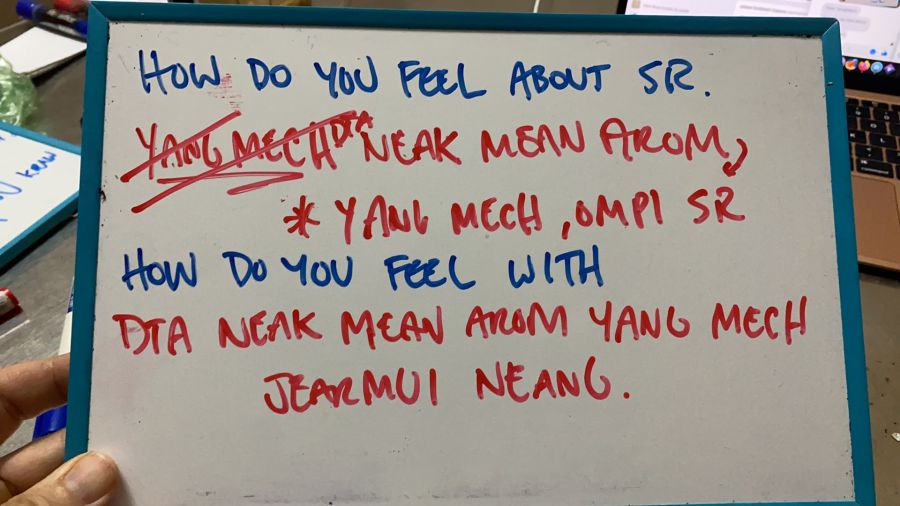 HOW DO YOU FEEL ABOUT SR.
YANG MECH DTA NEAK MEAN AROM,
* YANG MECH, OMPI SR
HOW DO YOU FEEL WITH
DTA NEAK MEAN AROM YANG MECH
JEARMUI NEANG.